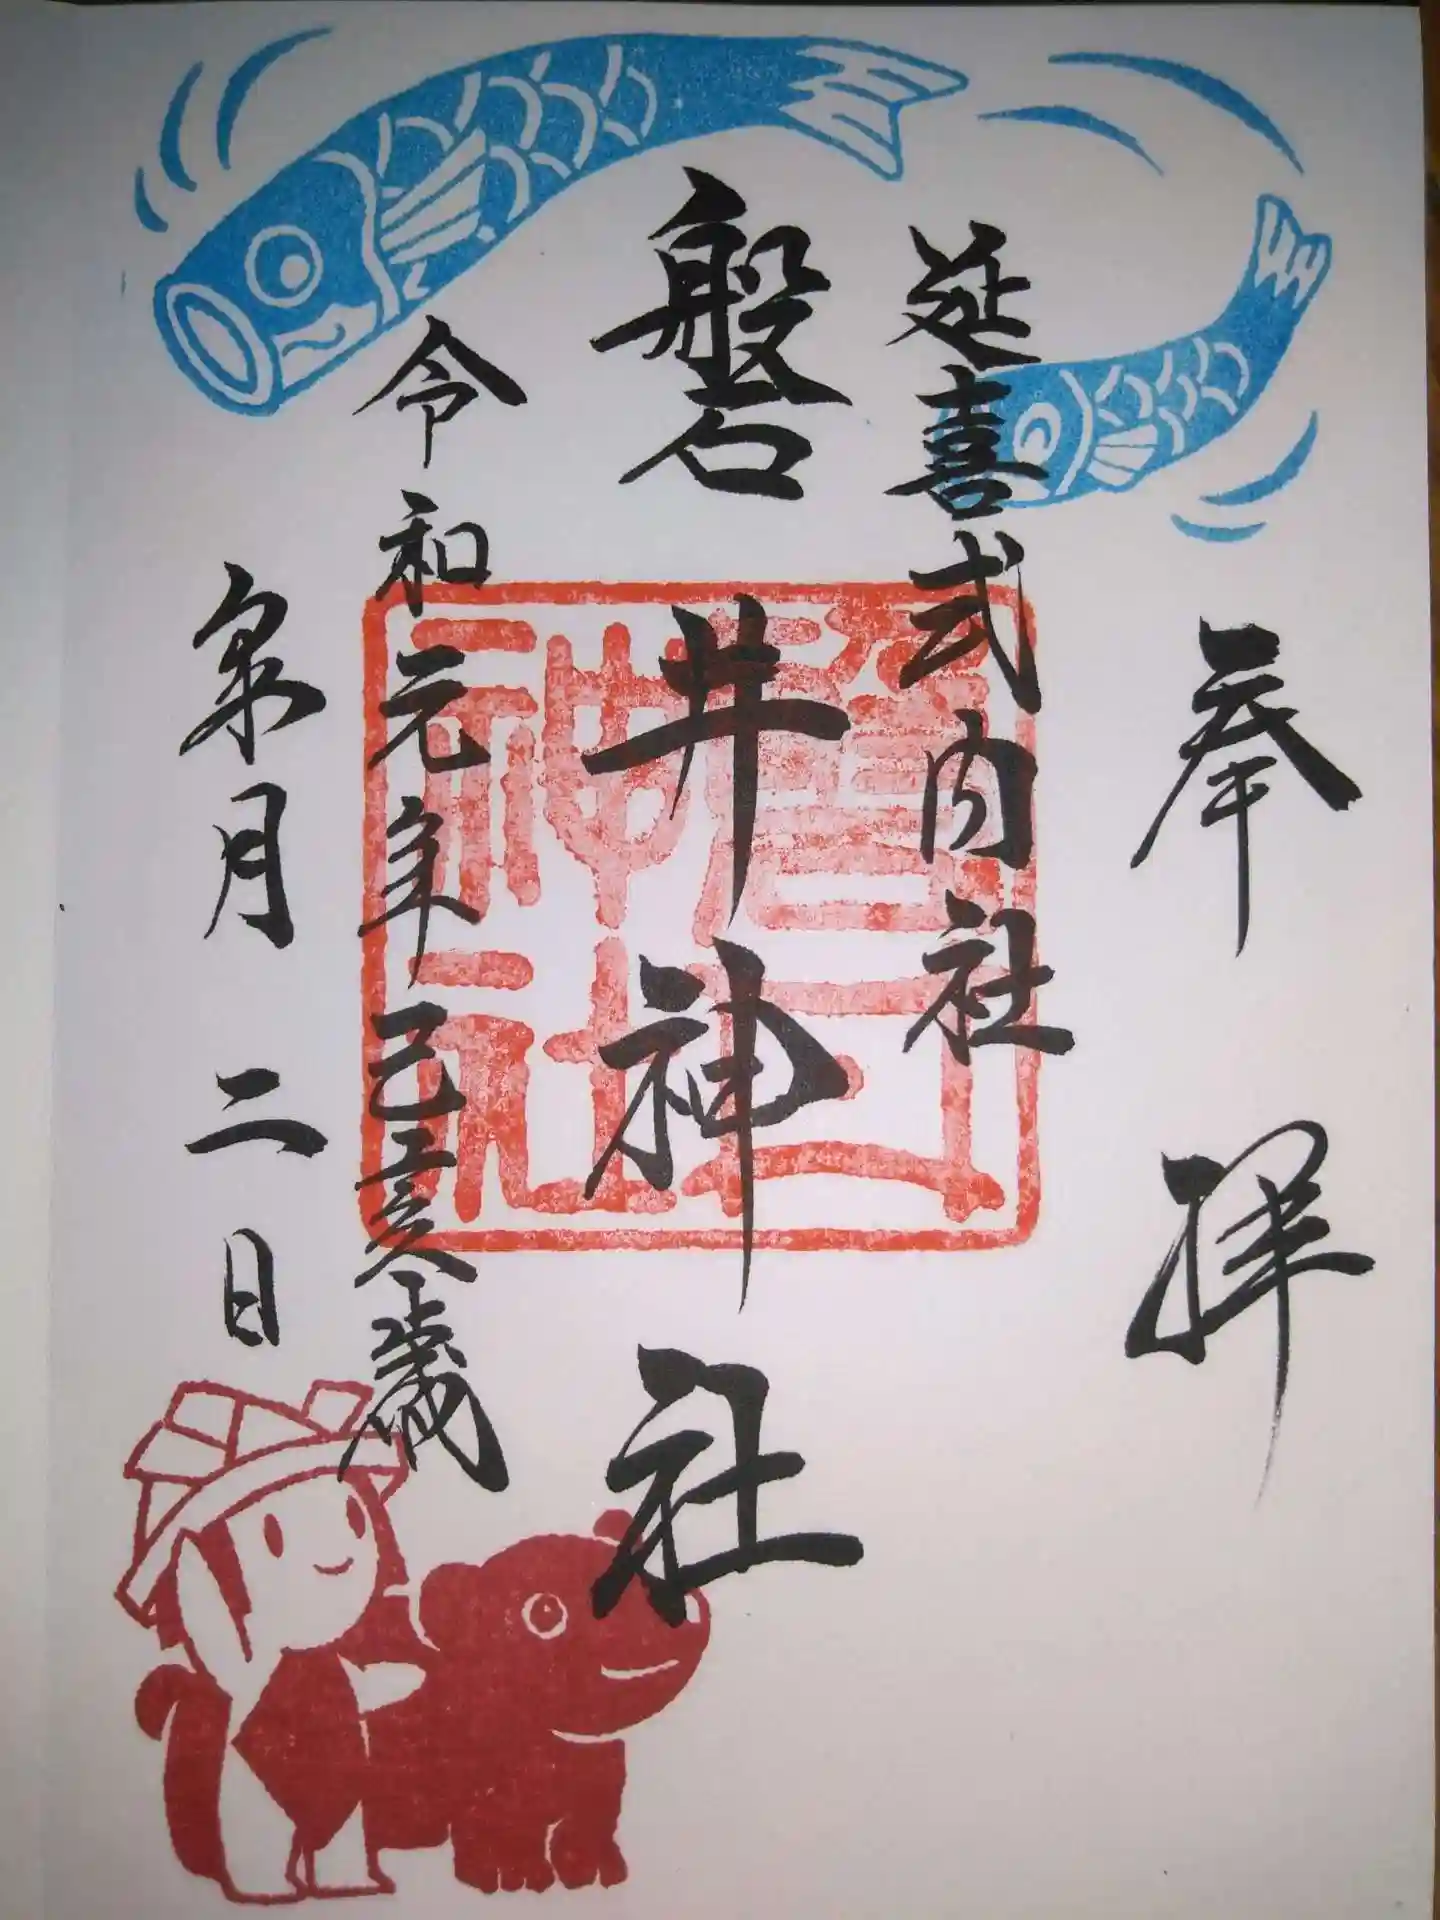 奉拝
延喜式内社
磐井神社
令和元年己亥歳
皐月二日
磐井神社